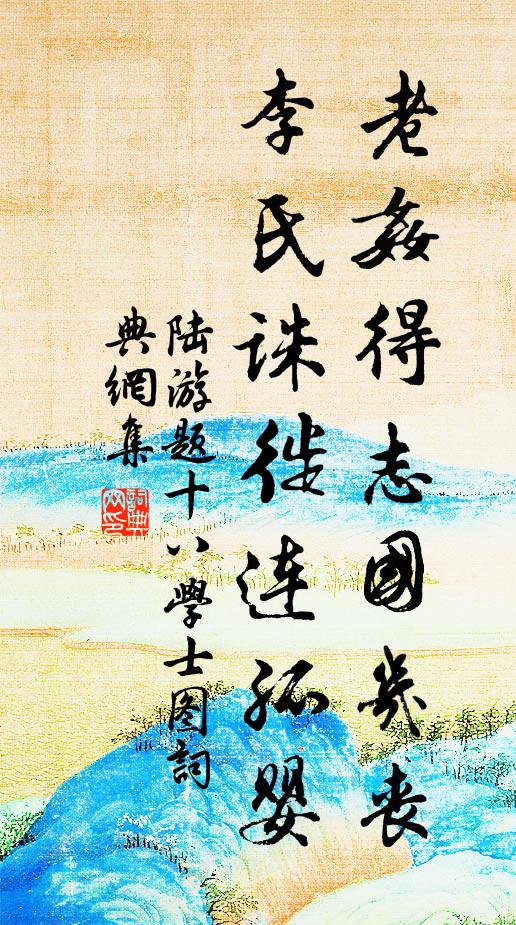 老姦得志國幾喪
李氏誅徙連孤嬰
陆游题十八學士图詞
典網集
詞典網印